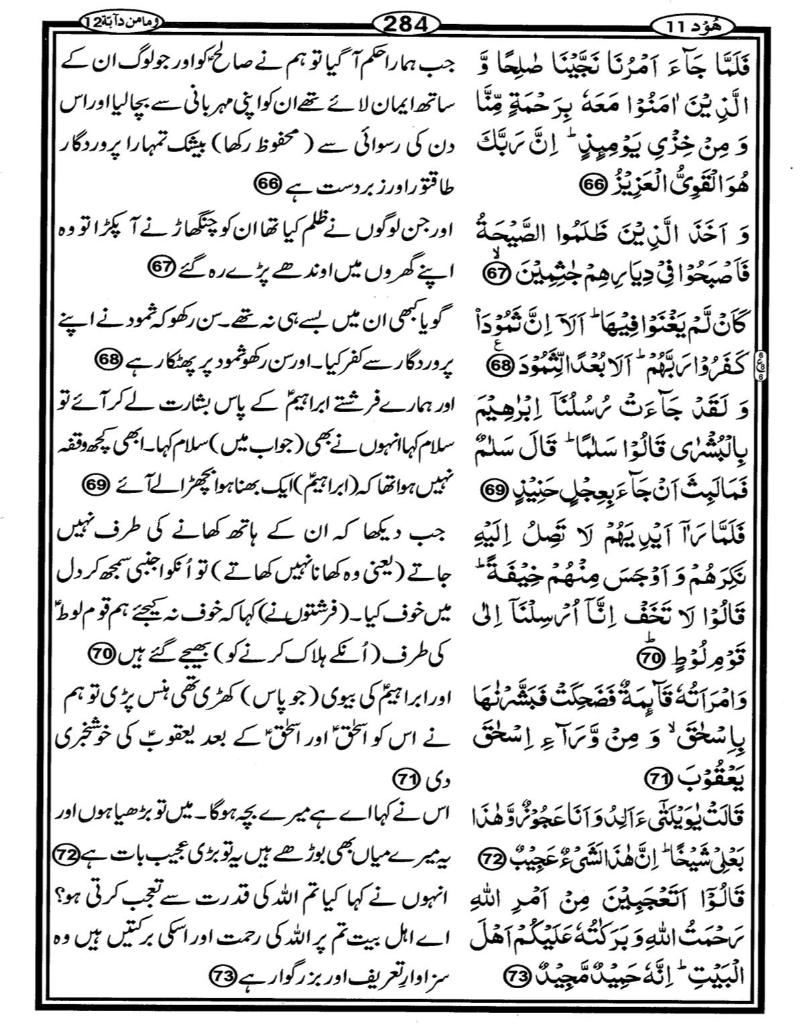 ھُوۡد 11
284
وَمَا مِنۡ دَآبَّۃٍ 12
فَلَمَّا جَآءَ اَمۡرُنَا نَجَّيۡنَا صٰلِحًا وَّ
الَّذِيۡنَ اٰمَنُوۡا مَعَهٗ بِرَحۡمَةٍ مِّنَّا
وَ مِنۡ خِزۡىِ يَوۡمِٮِٕذٍ‌ؕ اِنَّ رَبَّكَ
هُوَ الۡقَوِىُّ الۡعَزِيۡزُ 66
جب ہمارا حکم آ گیا تو ہم نے صالحؑ کو اور جو لوگ ان کے
ساتھ ایمان لائے تھے ان کو اپنی مہربانی سے بچا لیا اور اس
دن کی رسوائی سے (محفوظ رکھا) بیشک تمہارا پروردگار
طاقتور اور زبردست ہے 66
وَ اَخَذَ الَّذِيۡنَ ظَلَمُوا الصَّيۡحَةُ
فَاَصۡبَحُوۡا فِىۡ دِيَارِهِمۡ جٰثِمِيۡنَۙ 67
اور جن لوگوں نے ظلم کیا تھا ان کو چنگھاڑ نے آ پکڑا تو وہ
اپنے گھروں میں اوندھے پڑے رہ گئے 67
كَاَنۡ لَّمۡ يَغۡنَوۡا فِيۡهَا‌ؕ اَلَاۤ اِنَّ ثَمُوۡدَا۟
كَفَرُوۡا رَبَّهُمۡ‌ؕ اَلَا بُعۡدًا لِّـثَمُوۡدَ 68 ع
گویا کبھی ان میں بسے ہی نہ تھے۔ سن رکھو کہ ثمود نے اپنے
پروردگار سے کفر کیا۔ اور سن رکھو ثمود پر پھٹکار ہے 68
وَ لَقَدۡ جَآءَتۡ رُسُلُنَاۤ اِبۡرٰهِيۡمَ
بِالۡبُشۡرٰى قَالُوۡا سَلٰمًا‌ؕ قَالَ سَلٰمٌ
فَمَا لَبِثَ اَنۡ جَآءَ بِعِجۡلٍ حَنِيۡذٍ 69
اور ہمارے فرشتے ابراہیمؑ کے پاس بشارت لے کر آئے تو
سلام کہا انہوں نے بھی (جواب میں) سلام کہا۔ ابھی کچھ وقفہ
نہیں ہوا تھا کہ (ابراہیمؑ) ایک بھنا ہوا بچھڑا لے آئے 69
فَلَمَّا رَاٰۤ اَيۡدِيَهُمۡ لَا تَصِلُ اِلَيۡهِ
نَكِرَهُمۡ وَ اَوۡجَسَ مِنۡهُمۡ خِيۡفَةً‌ؕ
قَالُوۡا لَا تَخَفۡ اِنَّاۤ اُرۡسِلۡنَاۤ اِلٰى
قَوۡمِ لُوۡطٍؕ 70
جب دیکھا کہ ان کے ہاتھ کھانے کی طرف نہیں
جاتے (یعنی وہ کھانا نہیں کھاتے) تو اُنکو اجنبی سمجھ کر دل
میں خوف کیا۔ (فرشتوں نے) کہا کہ خوف نہ کیجئے ہم قوم لوطؑ
کی طرف (اُنکے ہلاک کرنے کو) بھیجے گئے ہیں 70
وَامۡرَاَتُهٗ قَآٮِٕمَةٌ فَضَحِكَتۡ فَبَشَّرۡنٰهَا
بِاِسۡحٰقَ ۙ وَ مِنۡ وَّرَآءِ اِسۡحٰقَ
يَعۡقُوۡبَ 71
اور ابراہیمؑ کی بیوی (جو پاس) کھڑی تھی ہنس پڑی تو ہم
نے اس کو اسحٰقؑ اور اسحٰقؑ کے بعد یعقوبؑ کی خوشخبری
دی 71
قَالَتۡ يٰوَيۡلَتٰٓى ءَاَلِدُ وَاَنَا عَجُوۡزٌ وَّهٰذَا
بَعۡلِىۡ شَيۡخًا‌ؕ اِنَّ هٰذَا لَشَىۡءٌ عَجِيۡبٌ 72
اس نے کہا اے ہے میرے بچہ ہوگا۔ میں تو بڑھیا ہوں اور
یہ میرے میاں بھی بوڑھے ہیں یہ تو بڑی عجیب بات ہے 72
قَالُوۡۤا اَتَعۡجَبِيۡنَ مِنۡ اَمۡرِ اللّٰهِ
رَحۡمَتُ اللّٰهِ وَبَرَكٰتُهٗ عَلَيۡكُمۡ اَهۡلَ
الۡبَيۡتِ‌ؕ اِنَّهٗ حَمِيۡدٌ مَّجِيۡدٌ 73
انہوں نے کہا کیا تم اللہ کی قدرت سے تعجب کرتی ہو؟
اے اہل بیت تم پر اللہ کی رحمت اور اسکی برکتیں ہیں وہ
سزاوارِ تعریف اور بزرگوار ہے 73